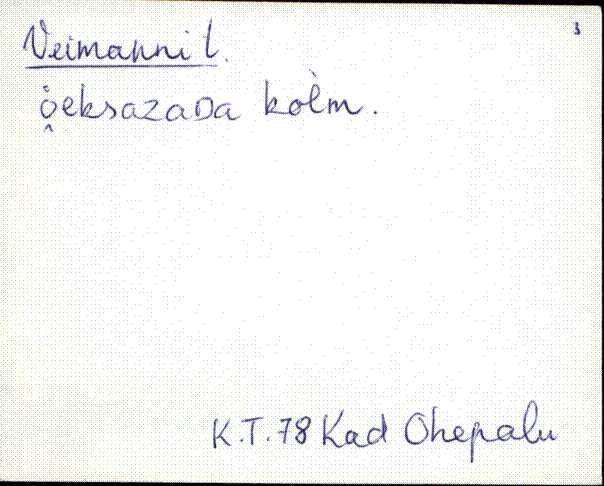 3
Veimanni t.
ö̭eksazaᴅa kolm̀.
K.T.78 Kad Ohepalu